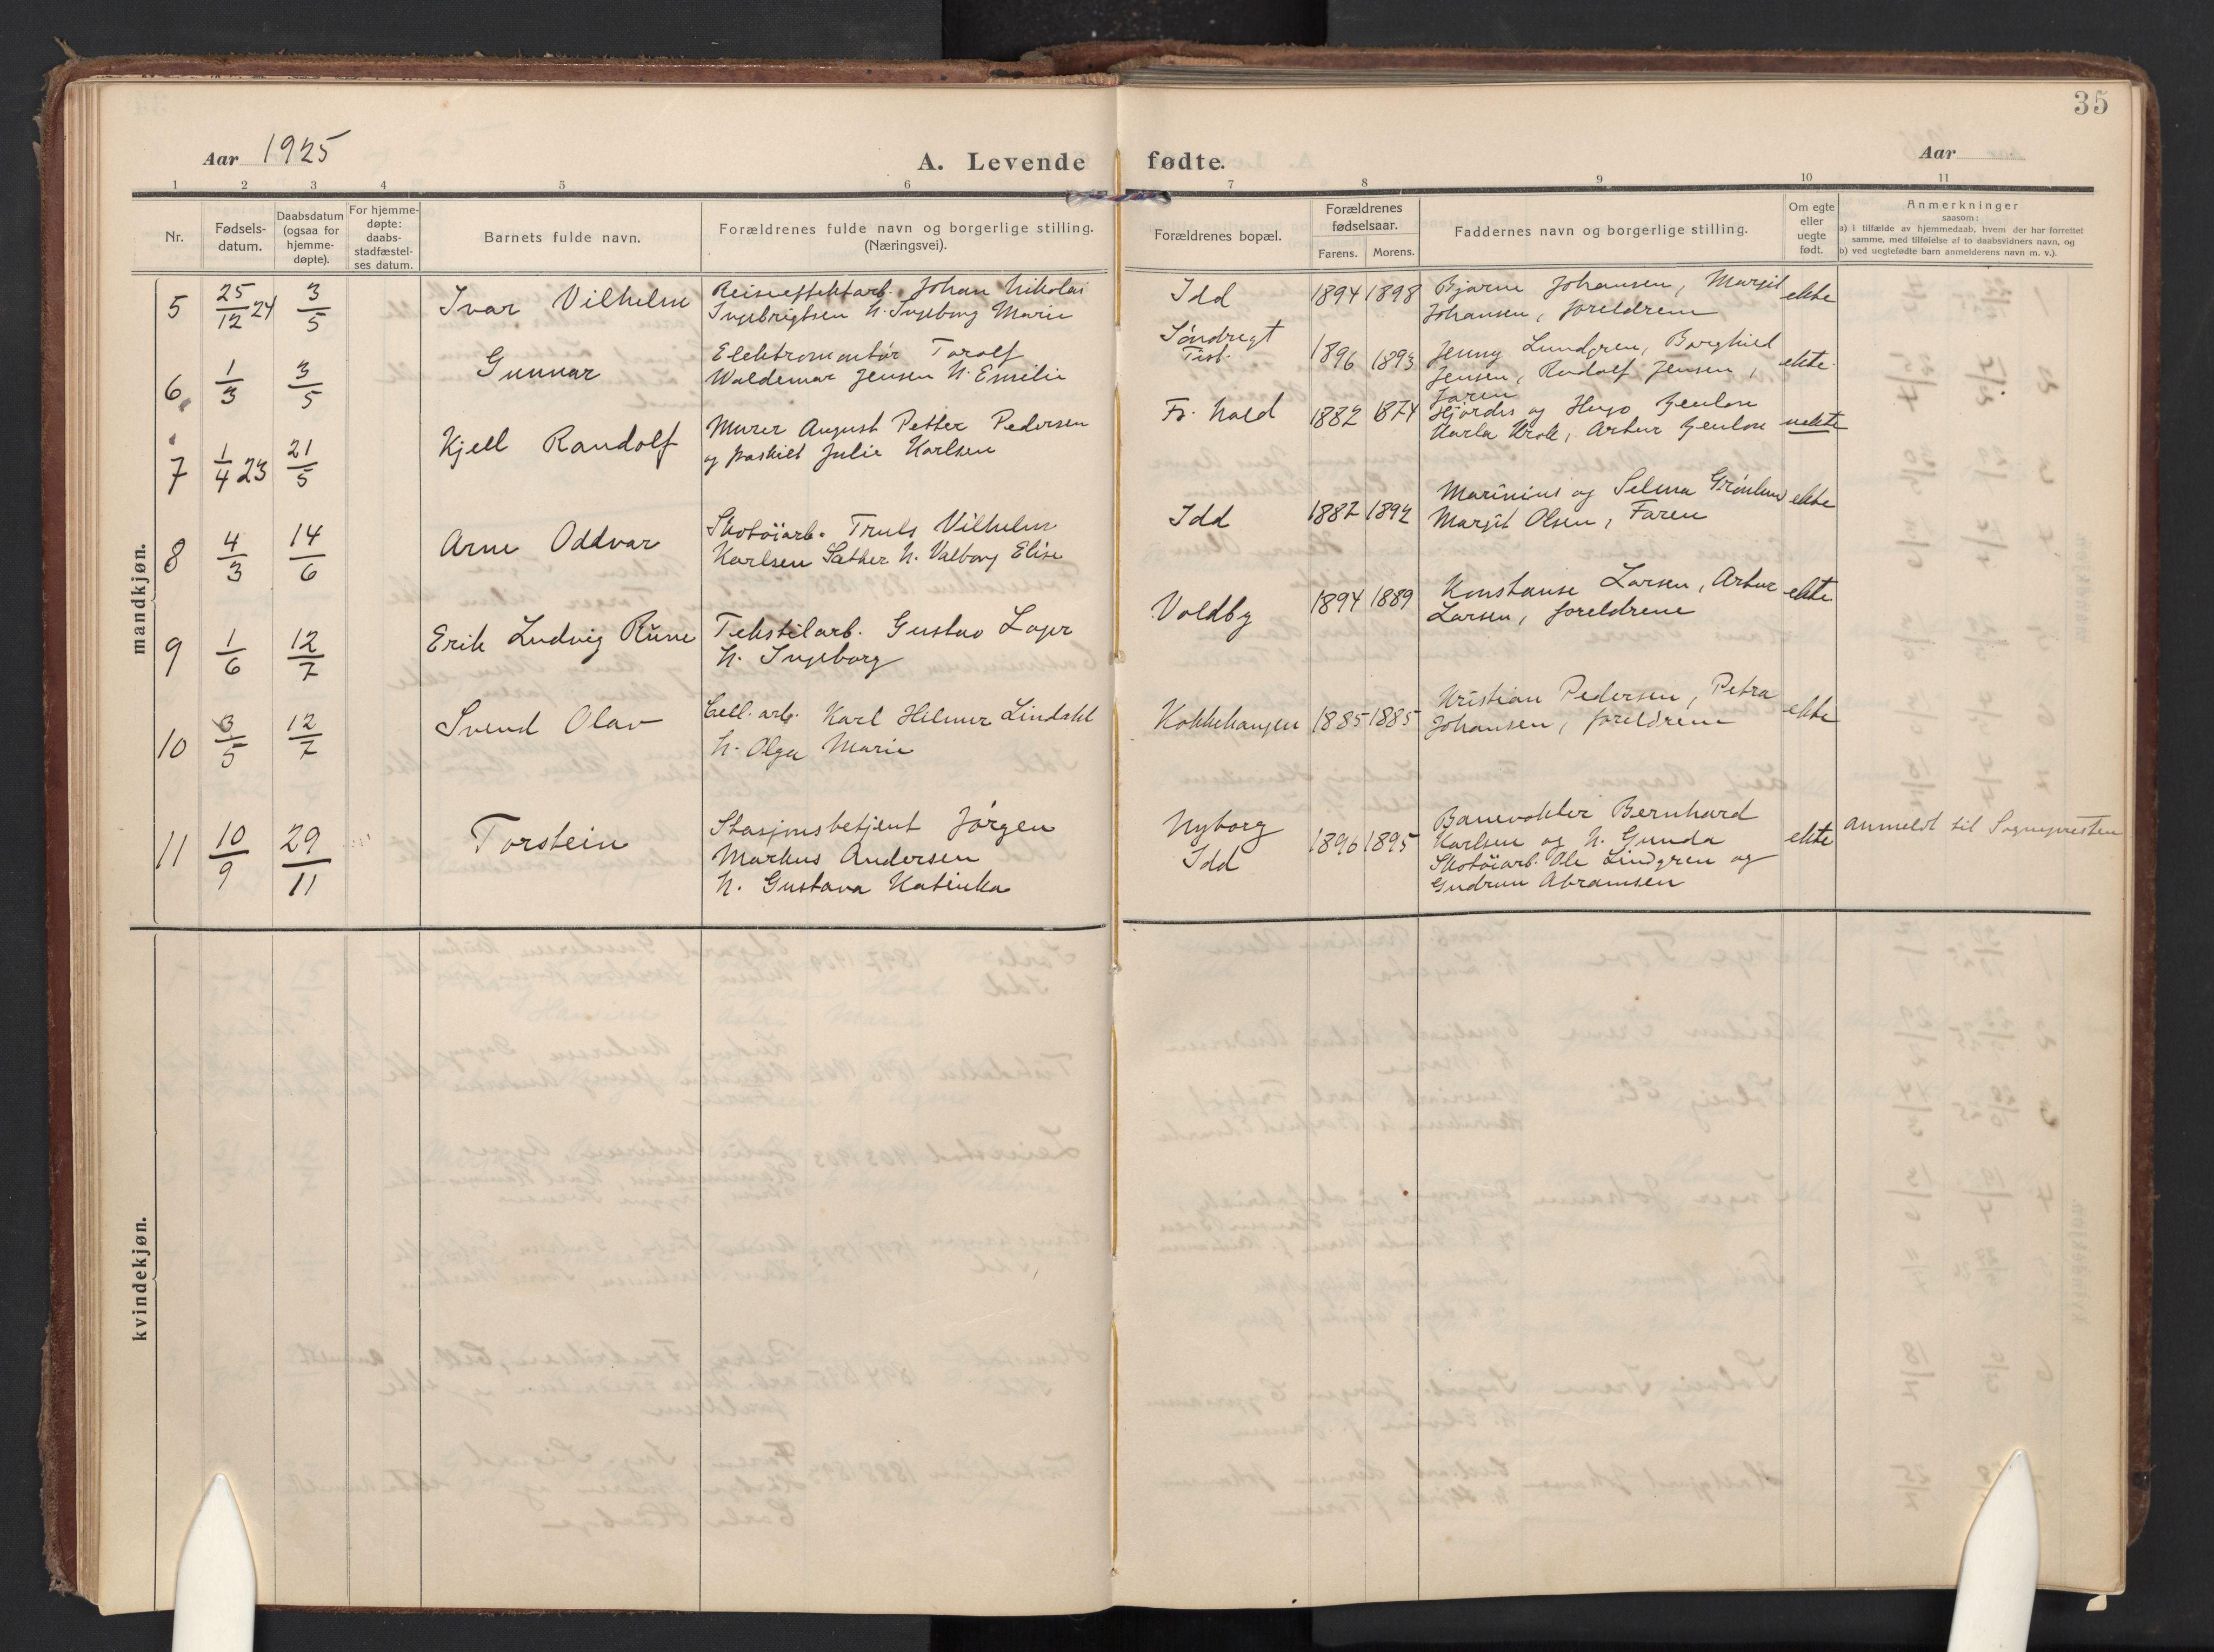 35
Aar 1925
A. Levende fødte.
Aar
1 2 3 4 5 6 7 8 9 10 11
Nr.
Fødsels-
datum.
Daabsdatum
(ogsaa for
hjemme-
døpte).
For hjemme-
døpte:
daabs-
stadfæstel-
ses datum.
Barnets fulde navn.
Forældrenes fulde navn og borgerlige stilling.
(Næringsvei).
Forældrenes bopæl.
Forældrenes
fødselsaar.
Farens. Morens.
Faddernes navn og borgerlige stilling.
Om egte
eller
uegte
født.
Anmerkninger
saasom:
a) i tilfælde av hjemmedaab, hvem der har forrettet
samme, med tilføielse af to daabsvidners navn, og
b) ved uegtefødte barn anmelderens navn m. v.).
mandkjøn.
5 25/12 24 3/5 Ivar Vilhelm
Reiseeffektarb. Johan Nikolai
Ingebrigtsen h. Ingeborg Marie
Idd 1894 1898
Bjarne Johansen, Margit
Johansen, foreldrene
ekte
6 1/3 3/5 Gunnar
Elektromontør Torolf
Waldemar Jensen h. Emilie
Søndregt
Tist. 1896 1893
Jenny Lundgren, Borghild
Jensen, Rudolf Jensen,
Faren
ekte
7 1/4 23 21/5 Kjell Randolf
Murer August Petter Pedersen
og fraskilt Julie Karlsen
Fr. hald 1882 1874
Hjørdis og Hugo
Karla Krok, Artur
uekte
8 4/3 14/6 Arne Oddvar
Skotøiarb. Truls Vilhelm
Karlsen Sæther h. Valborg Elise
Idd 1887 1892
Marinius og Selma Grønlund
Margit Olsen, Faren
ekte
9 1/6 12/7 Erik Ludvig Rune
Tekstilarb. Gustav Lager
h. Ingeborg
Voldby 1894 1889
Konstanse Larsen, Artur
Larsen, foreldrene
ekte
10 3/5 12/7 Svend Olav
Cell. arb. Karl Hilmer Lindahl
h. Olga Marie
Kokkehaugen 1885 1885
Kristian Pedersen, Petra
Johansen, foreldrene
ekte
11 10/9 29/11 Torstein
Stasjonsbetjent Jørgen
Markus Andersen
h. Gustava Katinka
Nyborg
Idd 1896 1895
Banevokter Bernhard
Karlsen og h. Gunda
Skotøiarb. Ole Lindgren og
Gudrun Abramsen
ekte
anmeldt til Sognepresten
kvindekjøn.